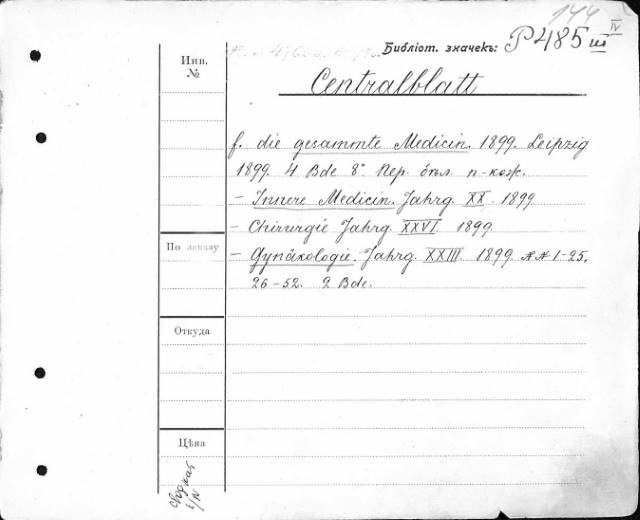 144
Библіот. значекъ: P485 III IV
Инв.
№
Centralblatt
f. die gesammte Medicin. 1899. Leipzig
1899. 4 Bde 8° Пер. бѣл. п-кож.
– Innere Medicin. Jahrg. XX. 1899
– Chirurgie Jahrg. XXVI. 1899.
По заказу
– Gynäkologie. Jahrg. XXIII. 1899. №№ 1–25,
26–52. 2 Bde.
Откуда
Цѣна